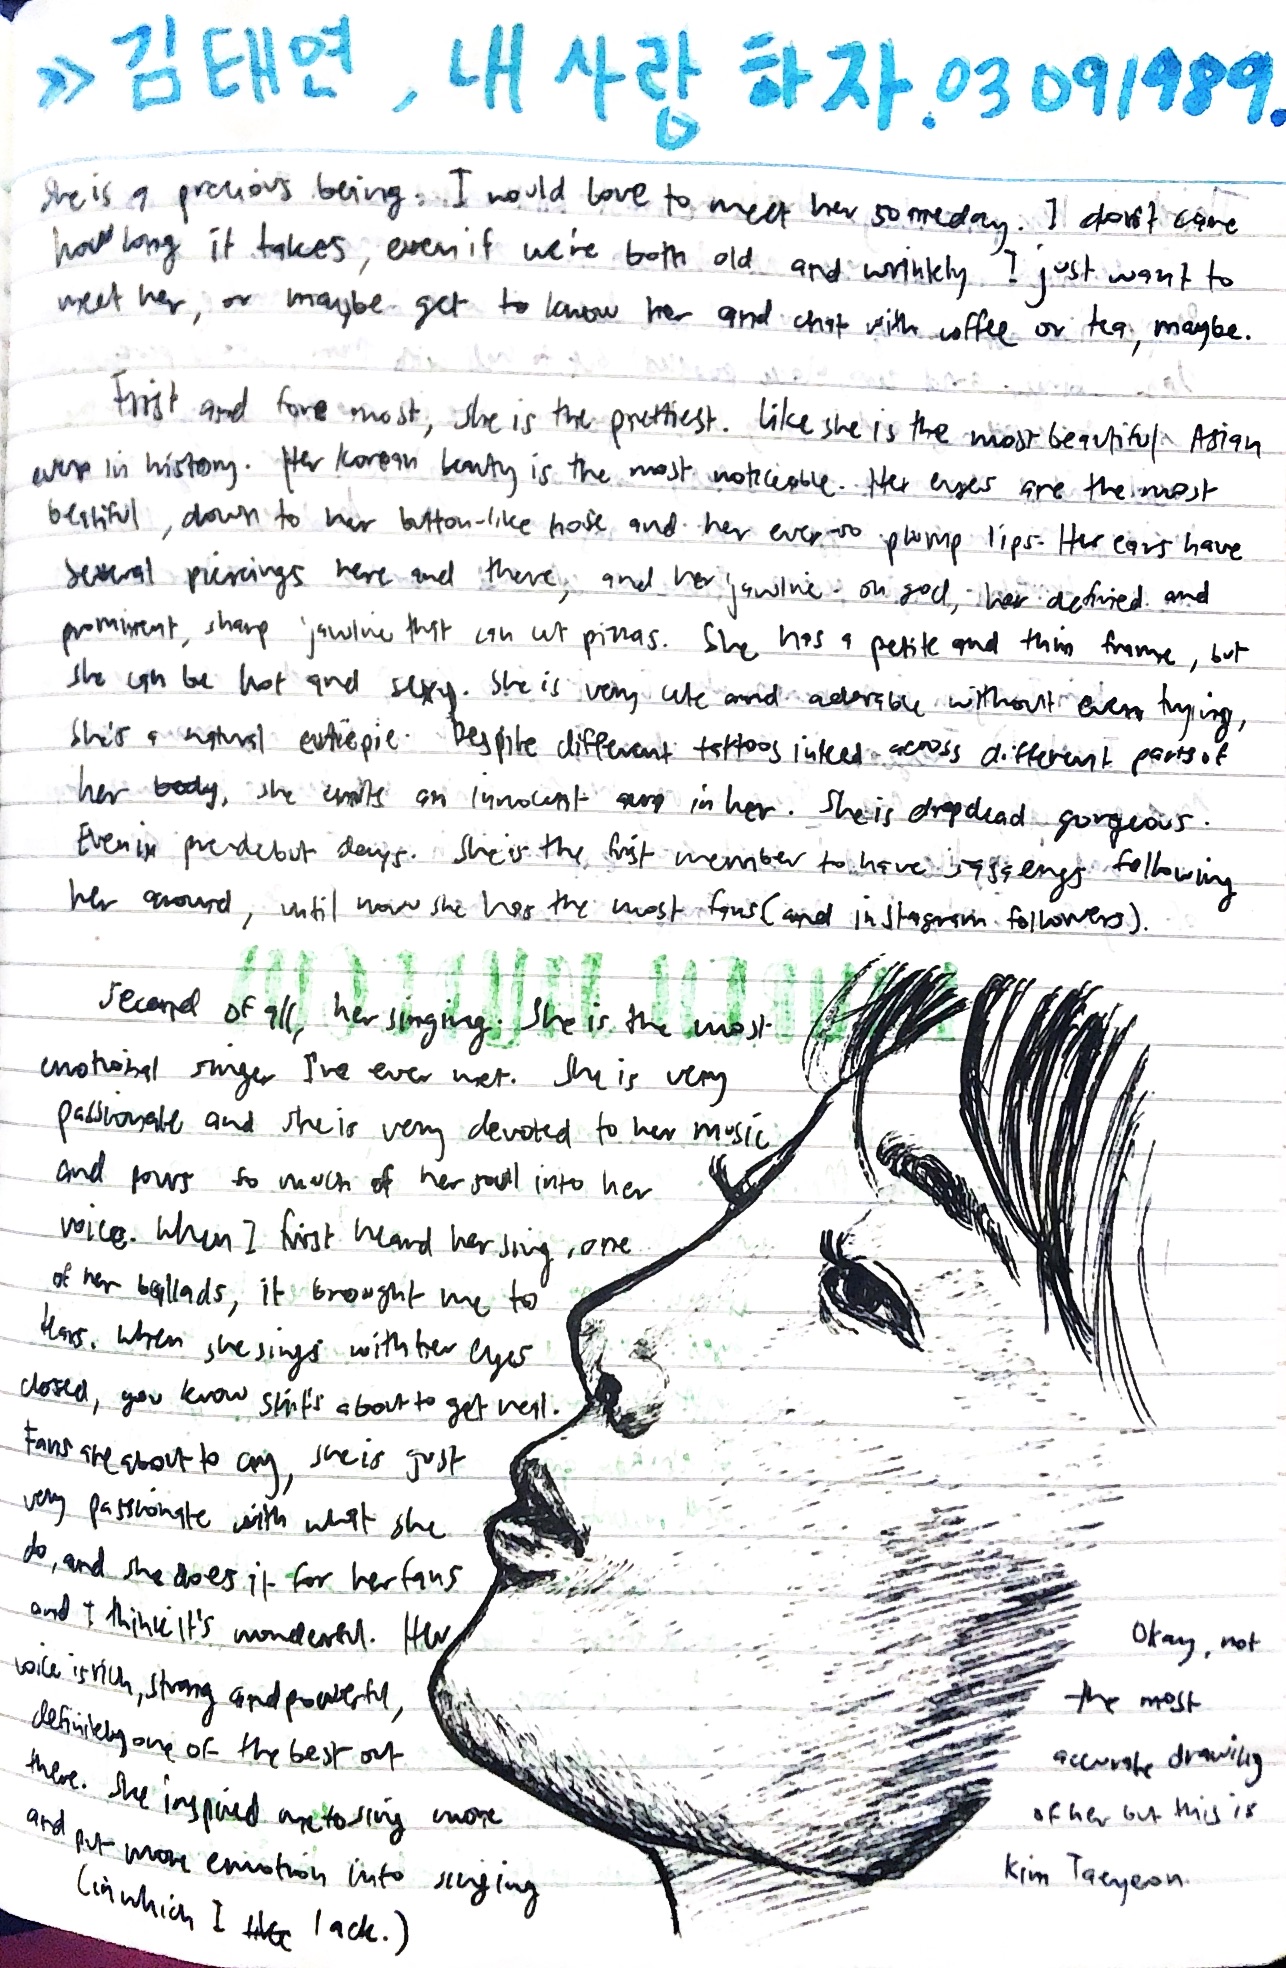 >> 김태연, 내 사랑 하자. 03091989.
She is a precious being. I would love to meet her someday. I don't care
how long it takes, even if we're both old and wrinkly I just want to
meet her, or maybe get to know her and chat with coffee or tea, maybe.
First and fore most, she is the prettiest. Like she is the most beautiful Asian
ever in history. Her Korean beauty is the most noticeable. Her eyes are the most
beatiful, down to her button-like nose and her ever-so plump lips. Her ears have
several piercings here and there, and her jawline. oh god, her defined and
prominent, sharp jawline that can cut pizzas. She has a petite and thin frame, but
she can be hot and sexy. She is very cute and adorable without even trying,
she's a natural cutiepie. Despite different tattoos inked across different parts of
her body, she emits an innocent aura in her. She is dropdead gorgeous.
Even in pre-debut days. She is the first member to have sasaengs following
her around, until now she has the most fans (and instagram followers).
Second of all, her singing. She is the most
emotional singer I've ever met. She is very
passionate and she is very devoted to her music
and pours so much of her soul into her
voice. When I first heard her sing, one
of her ballads, it brought me to
tears. When she sings with her eyes
closed, you know shit's about to get real.
Fans are about to cry, she is just
very passionate with what she
do, and she does it for her fans
and I think it's wonderful. Her
voice is rich, strong and powerful,
definitely one of the best out
there. She inspired me to sing more
and put more emotion into singing
(in which I like lack.)
Okay, not
the most
accurate drawing
of her but this is
Kim Taeyeon